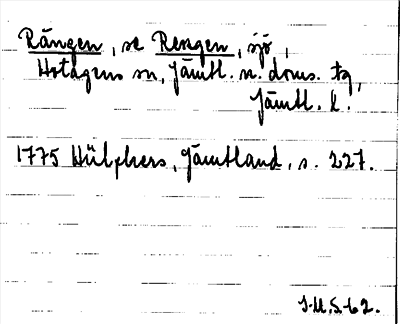 Rängen, se Rengen, sjö,
Hotagens sn, Jämtl. n. doms. tg,
Jämtl. l.
1775 Hülphers, Jämtland, s. 227.